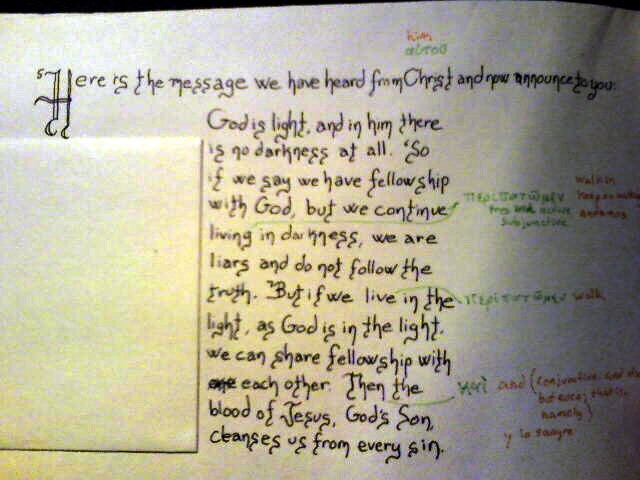 him
αὐτοῦ
5 Here is the message we have heard from Christ and now announce to you:
God is light, and in him there
is no darkness at all. 6 So
if we say we have fellowship
with God, but we continue
living in darkness, we are
liars and do not follow the
truth. 7 But if we live in the
light, as God is in the light,
we can share fellowship with
each other. Then the
blood of Jesus, God's Son,
cleanses us from every sin.
περιπατῶμεν
active
subjunctive
walk in
keep on walking
andamos
περιπατῶμεν walk
καὶ and (conjunctive: and also
but even; that is,
namely)
y la sangre